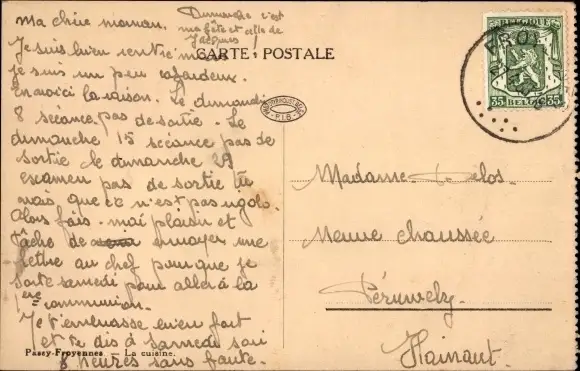 Ma chère maman.
Dimanche c'est
ma fête et celle de
Jacques !
Je suis bien rentré mais
je suis un peu cafardeux.
En voici la raison. Le dimanche
8 séance pas de sortie. Le
dimanche 15 séance pas de
sortie le dimanche 22
examen pas de sortie tu
vois que ce n'est pas rigolo.
Alors fais-moi plaisir et
tâche de envoyer une
lettre au chef pour que je
sorte samedi pour aller à la
1ère communion.
Je t'embrasse bien fort
et te dis à samedi soir
8 heures sans faute.
Passy-Froyennes. — La cuisine.
CARTE POSTALE
P.I.B.
BELGIQUE
35 BELGIE 35
Madame Delos.
Neuve chaussée
Péruwelz
Hainaut.